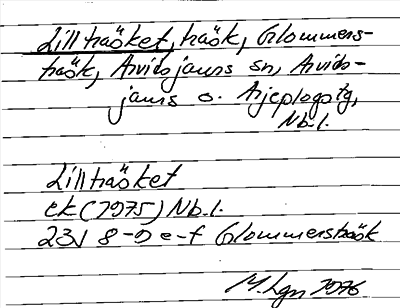 Lillträsket, träsk, Glommers-
träsk, Arvidsjaurs sn, Arvids-
jaurs o. Arjeplogs tg,
Nb. l.
Lillträsket
ek (1975) Nb. l.
23J 8-9 e-f Glommersträsk
M. Lgn 1976